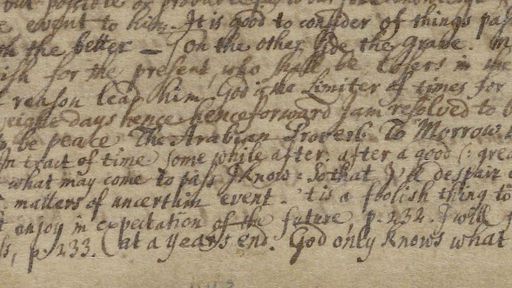 but possible or
event to him. It is good to consider of things pas
the better — On the other side the Grave.
ish for the present, who shall be losers in the
reason lead him God a Limiter of times for
eight days hence henceforward I am resolved to
be peace. The Arabian Proverb. To Morrow
tract of time some while after. after a good (: grea
what may come to pass I know: So that I'll despair
matters of uncertain event. 'tis a foolish thing to
enjoy in expectation of the future, p. 232. I will
p. 233. (at a years end. God only knows what